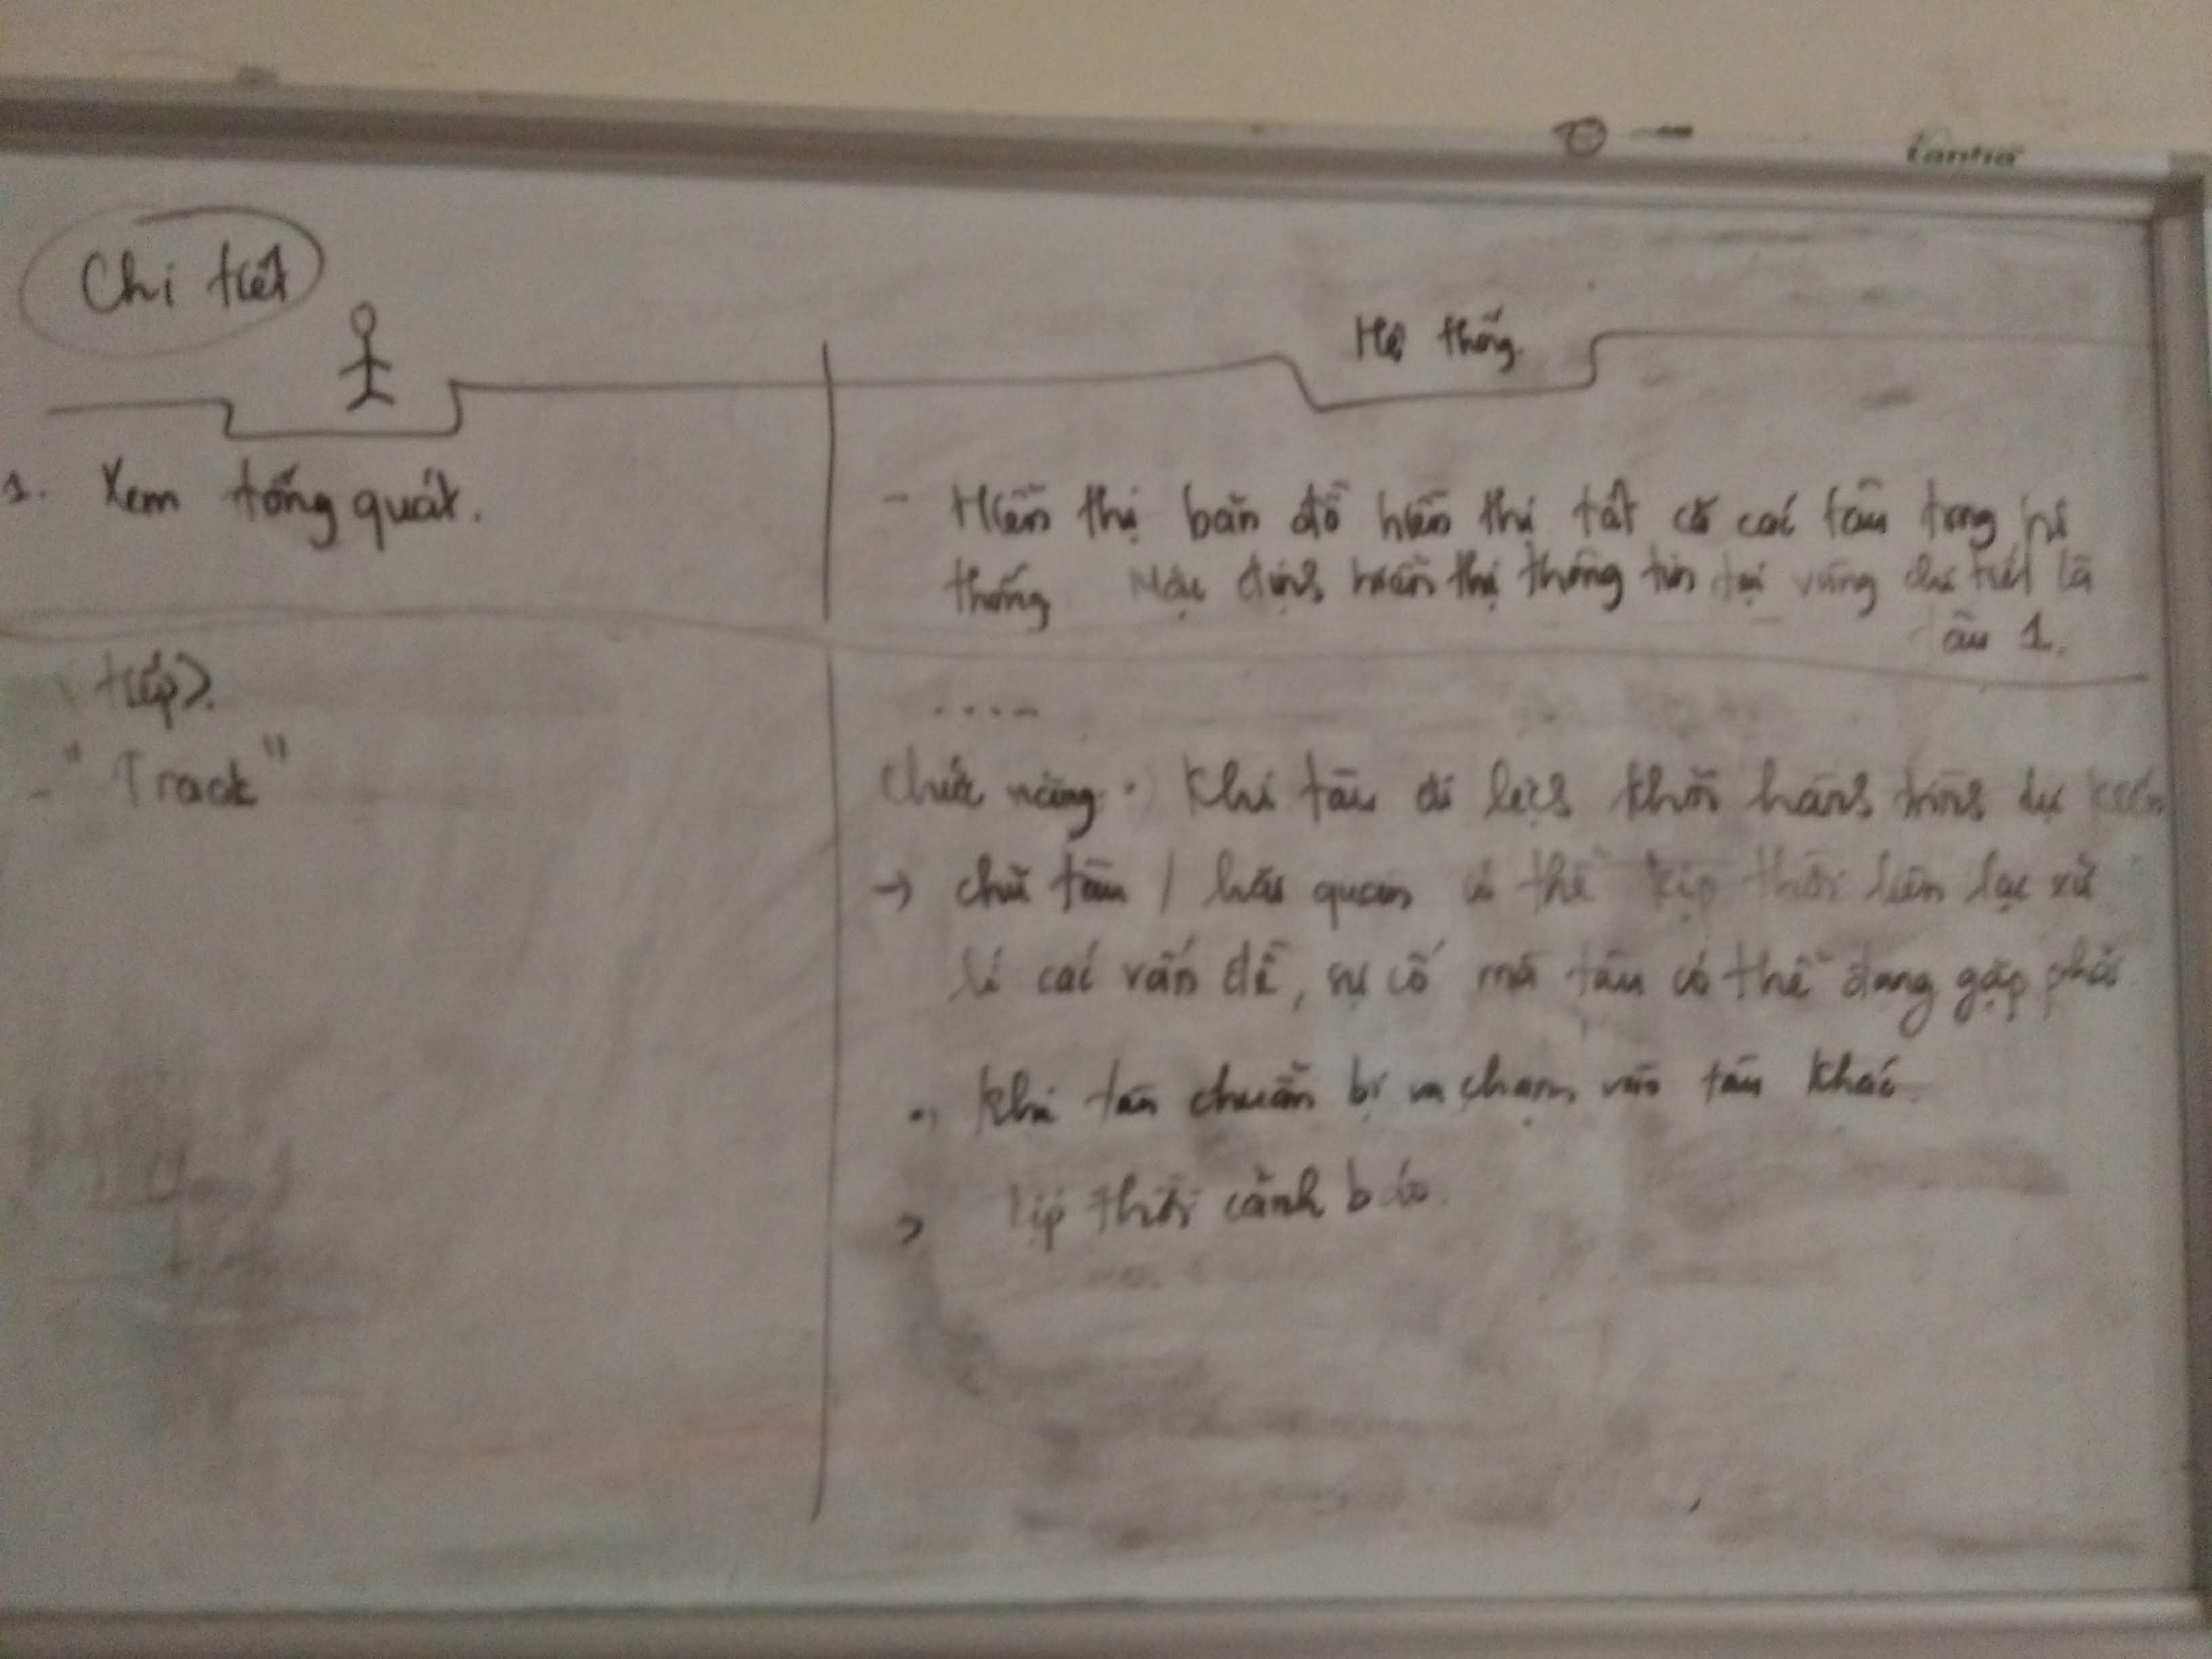 Chi tiết
Hệ thống.
1. Xem tổng quát.
- Hiển thị bản đồ hiển thị tất cả các tàu trong hệ
thống Mặc định hiển thị thông tin tại vùng chi tiết là
àu 1.
tiếp>.
....-
- "Track"
chức năng. Khi tàu đi lệch khỏi hành trình dự kiến
→ chủ tàu / hải quan có thể kịp thời liên lạc xử
lí các vấn đề, sự cố mà tàu có thể đang gặp phải
Khi tàu chuẩn bị va chạm vào tàu khác.
> kịp thời cảnh báo.